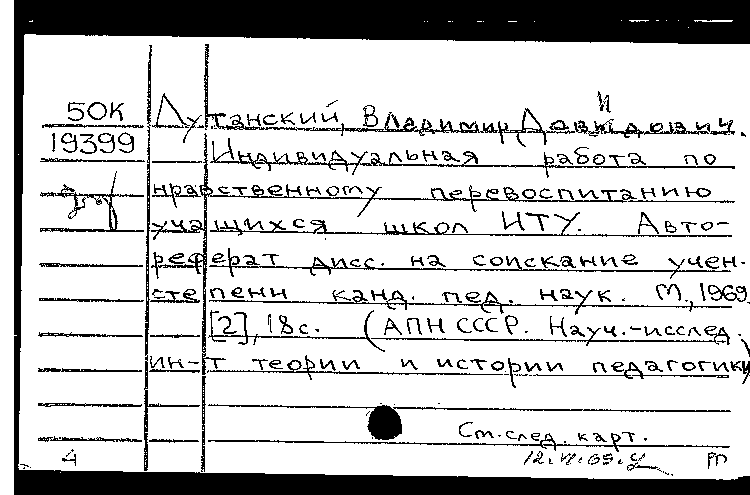 50К Лутанский, Владимир Давидович.
19399 Индивидуальная работа по
нравственному перевоспитанию
учащихся школ ИТУ. Авто-
реферат дисс. на соискание учен.
степени канд. пед. наук. М., 1969
[2], 18 с. (АПН СССР. Науч.-исслед.
ин-т теории и истории педагогики)
См. след. карт.
4